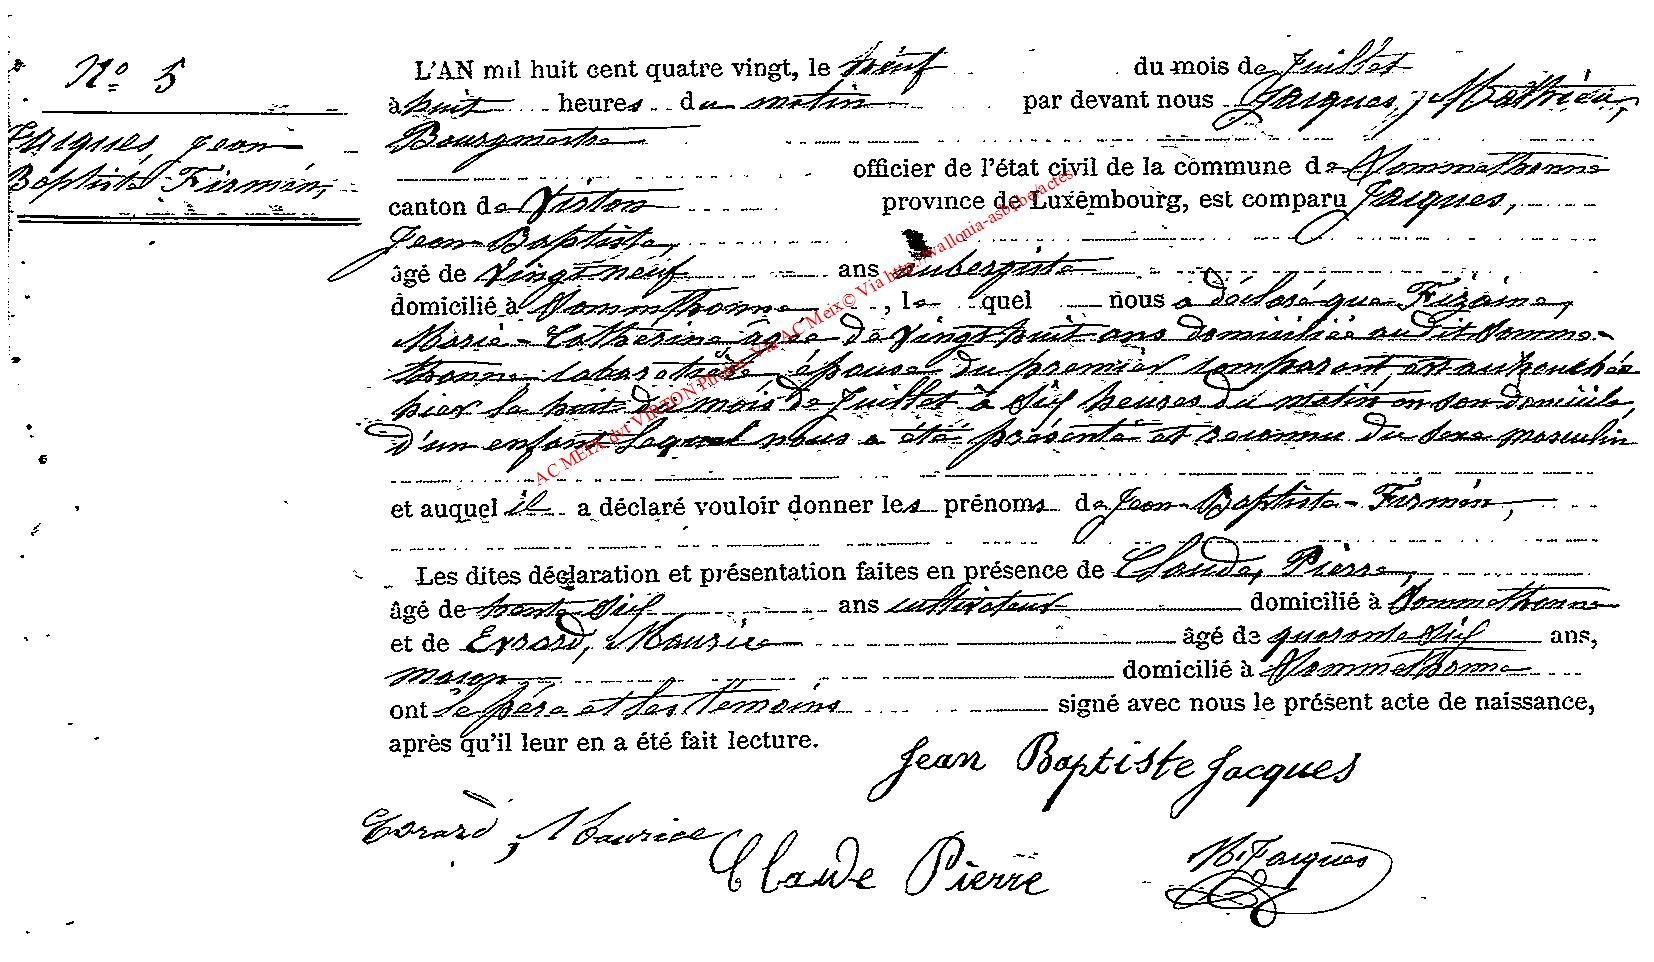 N° 5
Jacques, Jean
Baptiste Firmin,
L'AN mil huit cent quatre vingt, le neuf du mois de Juillet
à huit heures du matin par devant nous Jacques, Mathieu,
Bourgmestre
officier de l'état civil de la commune de Sommethonne
canton de Virton province de Luxembourg, est comparu Jacques,
Jean-Baptiste,
âgé de Vingt neuf ans aubergiste
domicilié à Sommthonne, le quel nous a déclaré que Fizaine,
Marie-Catherine âgée de Vingt huit ans domiciliée au dit Somme-
thonne, cabaretière, épouse du premier comparant, est accouchée
hier le huit du mois de Juillet à Six heures du matin en son domicile,
d'un enfant lequel nous a été présenté et reconnu du sexe masculin
et auquel il a déclaré vouloir donner les prénoms de Jean-Baptiste-Firmin,
Les dites déclaration et présentation faites en présence de Claude, Pierre,
âgé de trente Six ans cultivateur domicilié à Sommethonne
et de Evrard, Maurice âgé de quarante Six ans,
maçon domicilié à Sommethonne
ont le père et les témoins signé avec nous le présent acte de naissance,
après qu'il leur en a été fait lecture.
Jean Baptiste Jacques
Evrard, Maurice
Claude Pierre
M. Jacques
AC MEIX dvt VIRTON Photos Via AC Meix© Via http://wallonia-asbl.be/actes/